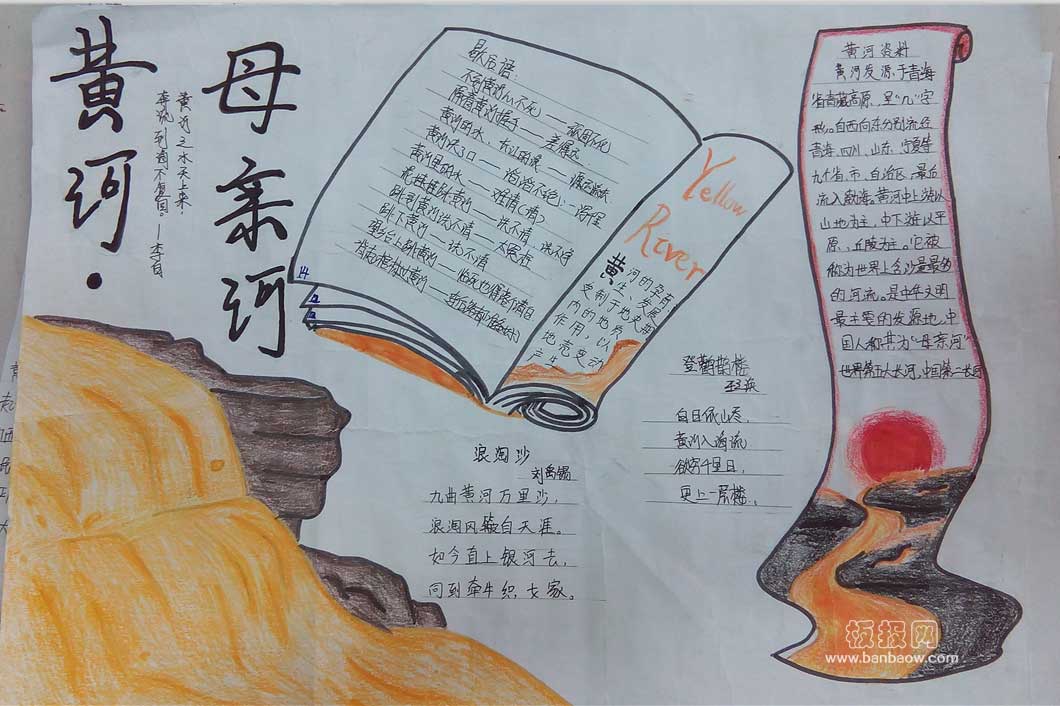 黄河·
母亲河
黄河之水天上来，
奔流到海不复回。—李白
歇后语：
不到黄河心不死——顽固不化
隔着黄河握手——差得远
黄河的水，长江的浪——源远流长
黄河决了口——滔滔不绝；一泻千里
黄河里的水——难清（请）
跳到黄河洗不清——太冤枉
跳下黄河——洗不清
Yellow
River
黄河的孕育
生、发展
受制于地史期
内的地质
作用，以
地壳变动
产生
黄河资料
黄河发源于青海
省青藏高原，呈“几”字
形。自西向东分别流经
青海、四川、山东、宁夏等
九个省、市、自治区，最后
流入渤海。黄河中上游以
山地为主，中下游以平
原、丘陵为主。它被
称为世界上含沙量最多的
的河流。是中华文明
最主要的发源地，中
国人称其为“母亲河”
世界第五大长河，中国第二长河
登鹳雀楼
王之涣
白日依山尽，
黄河入海流
欲穷千里目，
更上一层楼。
浪淘沙
刘禹锡
九曲黄河万里沙，
浪淘风簸自天涯。
如今直上银河去，
同到牵牛织女家。
板报网
www.banbaow.com